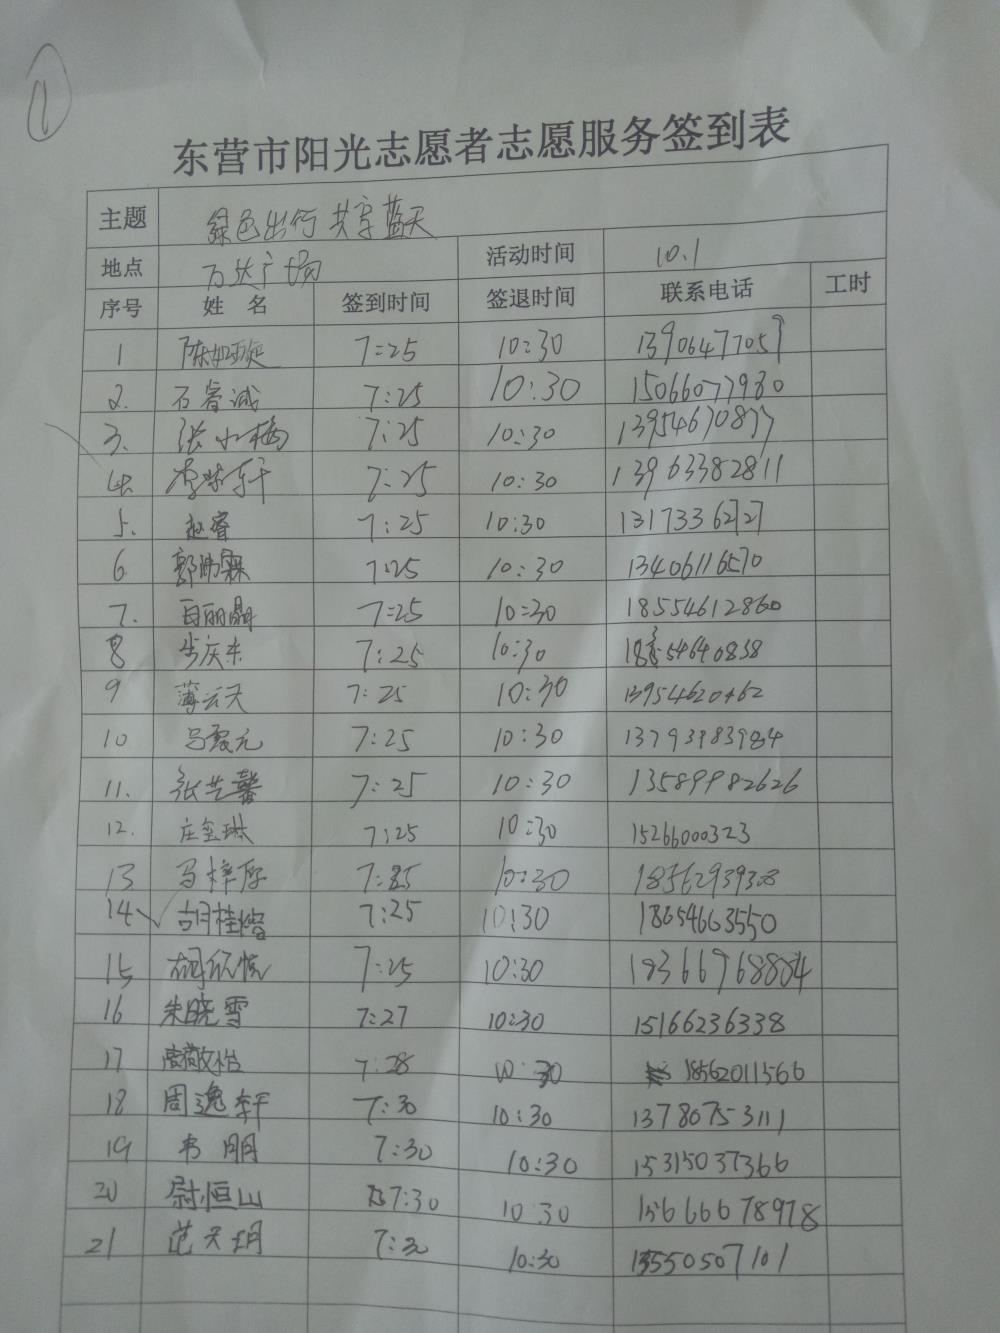 1
东营市阳光志愿者志愿服务签到表
主题 绿色出行 共享蓝天
地点 万达广场 活动时间 10.1
序号 姓 名 签到时间 签退时间 联系电话 工时
1 7:25 10:30 13906477057
2. 石睿诚 7:25 10:30 15066077980
3. 张小梅 7:25 10:30 13954670877
4. 7:25 10:30 13963382811
5. 赵睿 7:25 10:30 13173336727
6 7:25 10:30 13406116570
7. 百丽晶 7:25 10:30 18554612860
8 步庆东 7:25 10:30
9 薄云天 7:25 10:30 13954620462
10 吕震元 7:25 10:30 13793983984
11. 张芝馨 7:25 10:30 13589982626
12. 庄玺琳 7:25 10:30 15266000323
13 马梓原 7:25 10:30 18562939308
14 胡桂增 7:25 10:30 18654663550
15 胡欣悦 7:25 10:30 18366968884
16 朱晓雪 7:27 10:30 15166236338
17 高敬怡 7:28 10:30 18562011566
18 周逸轩 7:30 10:30 13780753111
19 韦朋 7:30 10:30 15315037366
20 尉恒山 7:30 10:30 15666678978
21 范天玥 7:30 10:30 13550507101